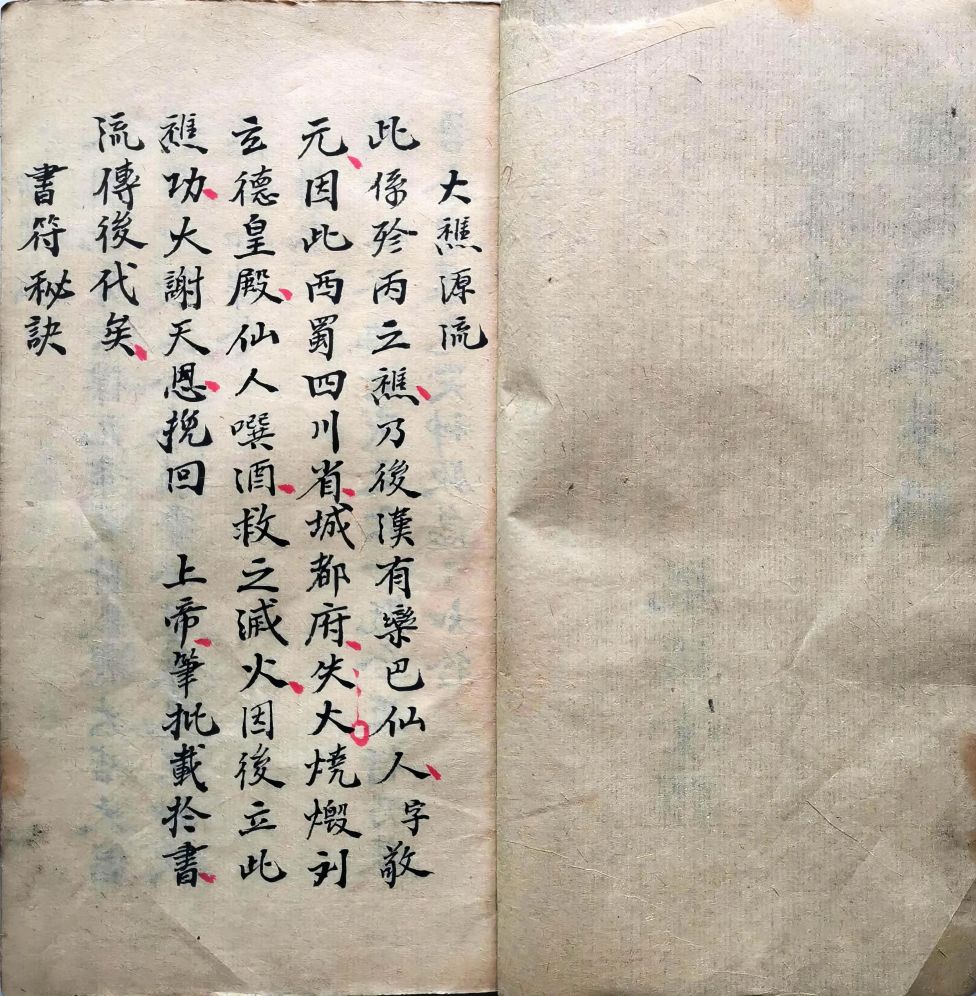 大醮源流
此係殄丙之醮乃後漢有欒巴仙人字敬
元因此西蜀四川省城都府失大燒燬刘
玄德皇殿仙人噀酒救之滅火因後立此
醮功大謝天恩挽回　上帝筆批載於書
流傳後代矣
書符秘訣